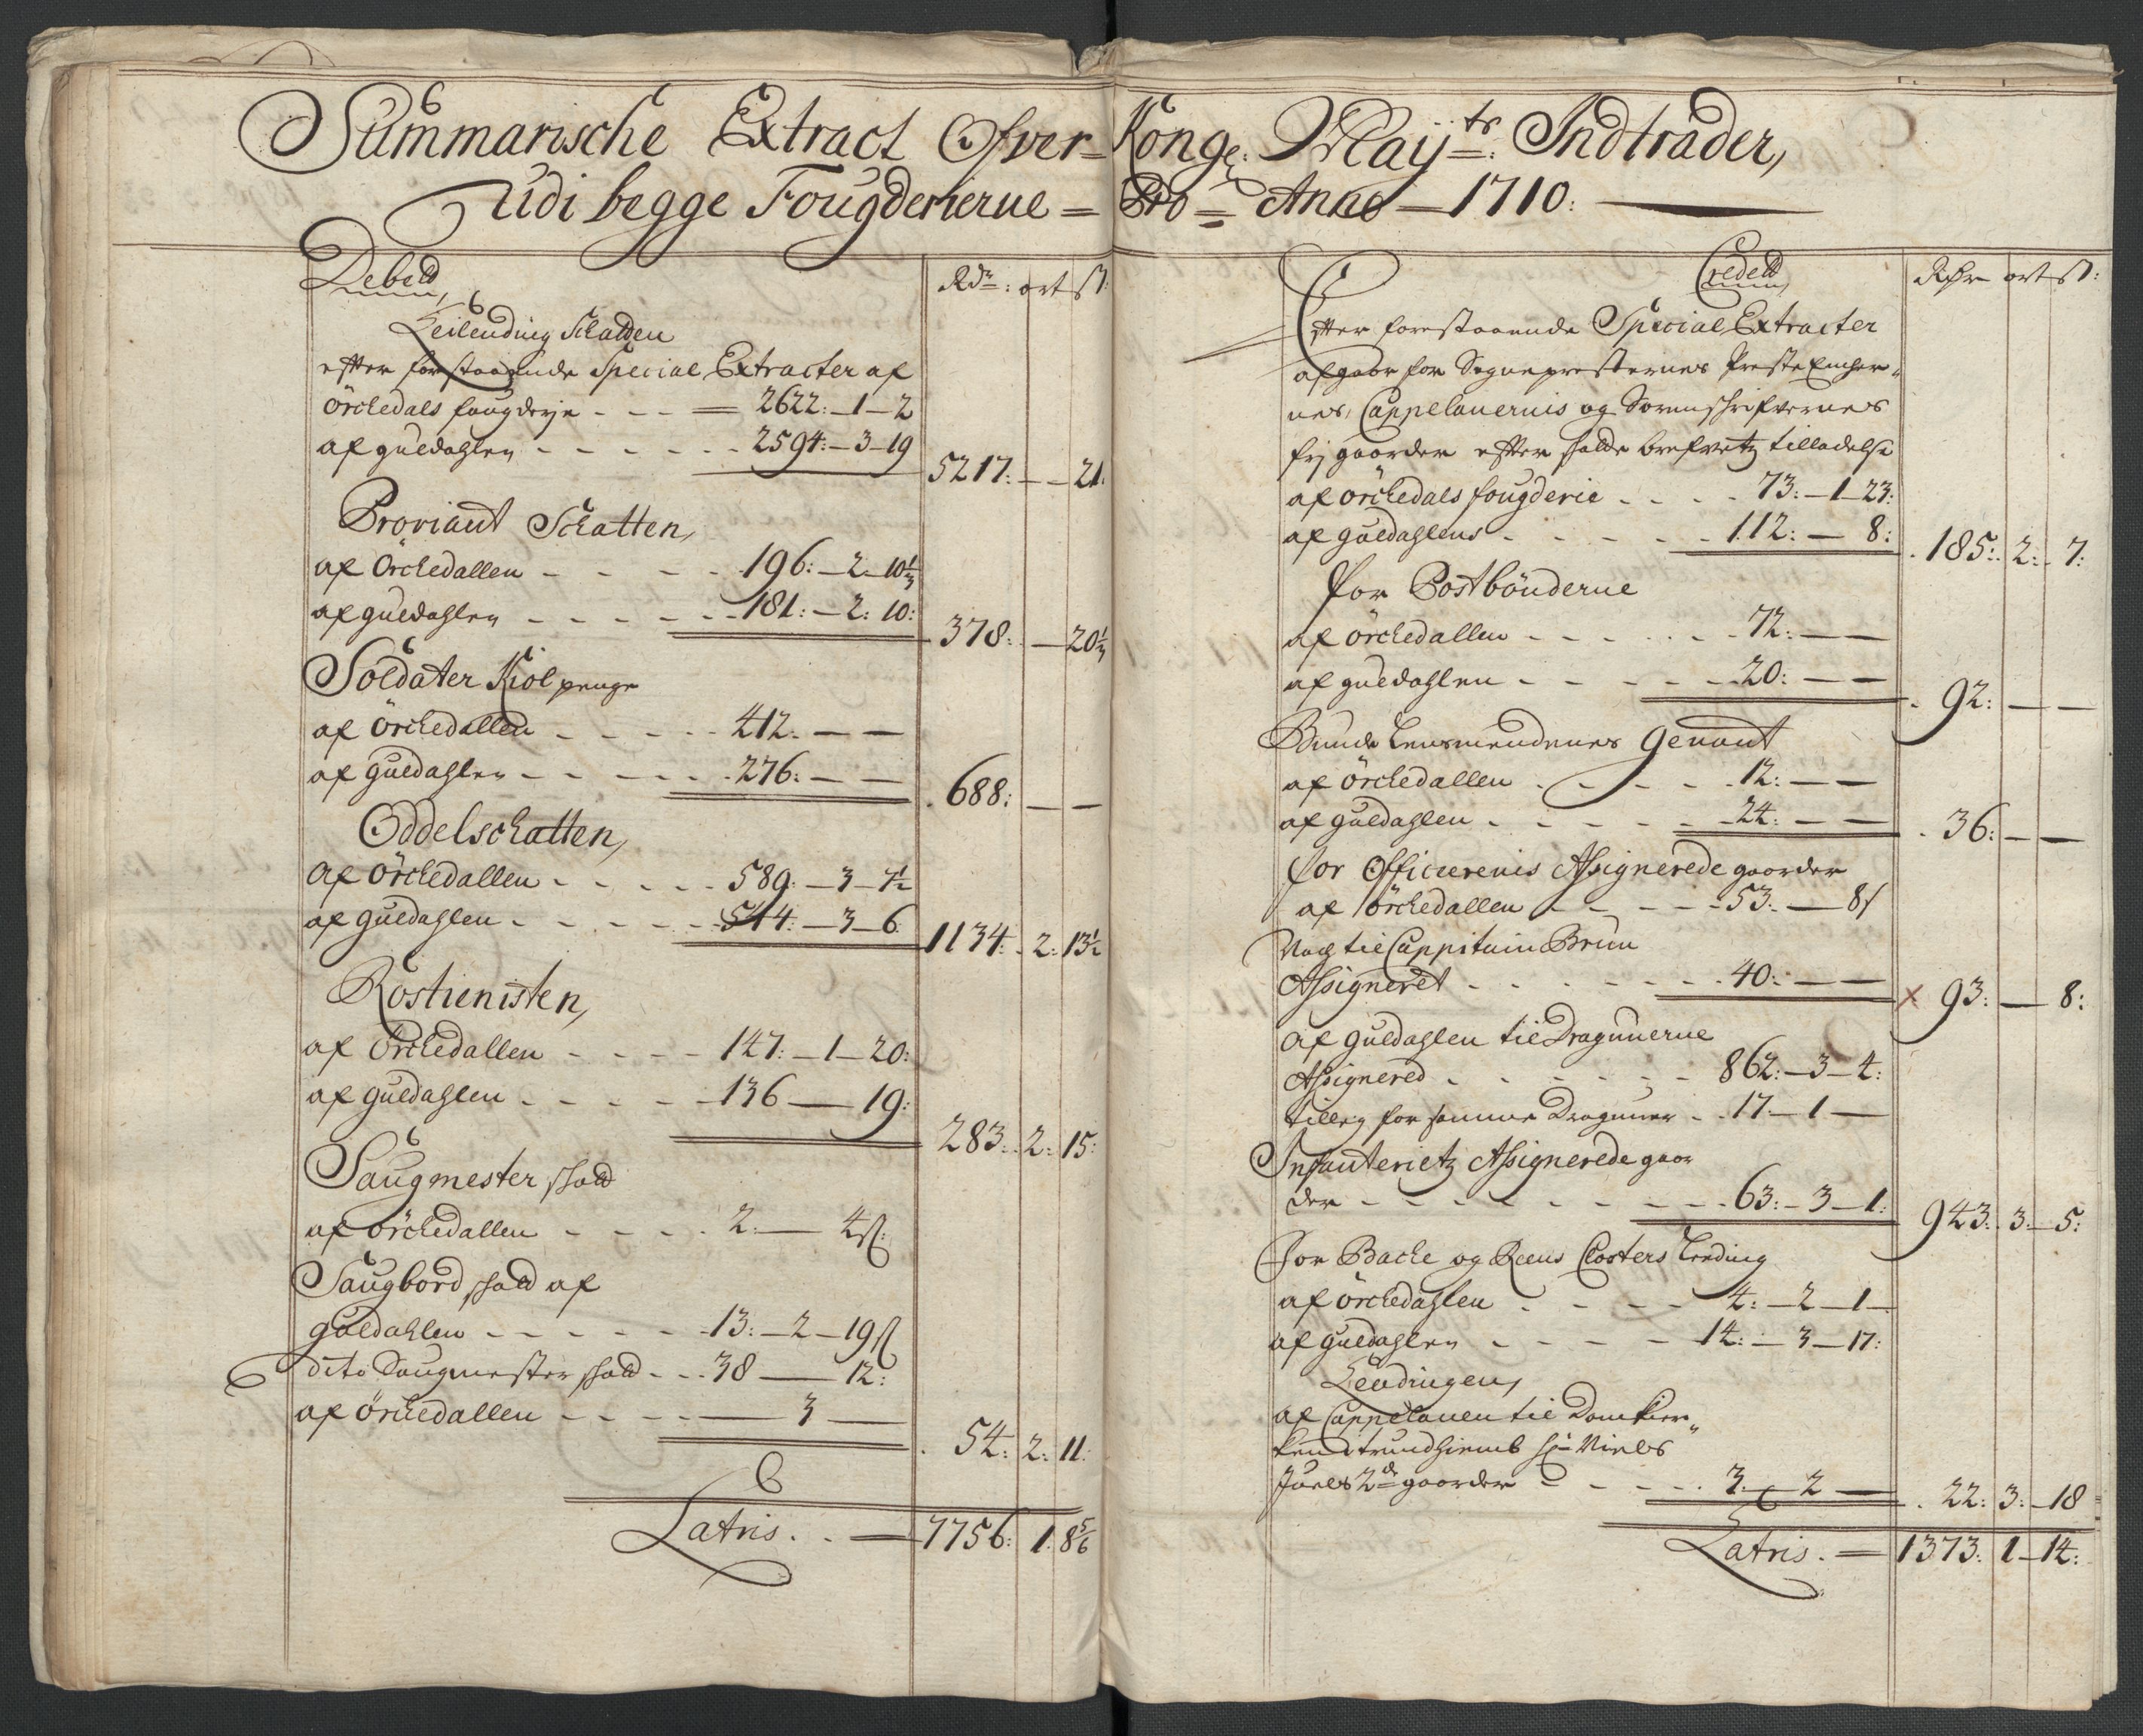 Summarische Extract Ofver= Kong: Mayts: Indtrader,
udi begge Fougderierne = Pro = Anno — 1710:
Debett, Rdr: ort ß:
Leilending Schatten
efter forstaaende Special Extracter af
örchedals fougderje - - - = 2622: — 1 — 2
af guldahlen - - - - - - 2594: — 3 — 19
5217: — — 21:
Proviant Schatten,
af Orchedallen - - - - 196: — 2 — 10½
af guldahlen - - - - - - 181: — 2: 10:
378: — 20⅓
Soldater Kiol penge
af örchedallen - - - - - 412: — —
af guldahlen - - - - - - 276: — —
688: — —
Oddelschatten,
af örchedallen - - - - - 589: — 3 — 7½
af guldahlen - - - - - - 544: — 3 — 6
1134: 2: 13½
Rostienisten,
af Orchedallen - - - - 147: — 1 — 20:
af guldahlen - - - - - 136 — 19:
283: 2: 15:
Saugmester schatt
af örchedallen - - - - 2: — 4ß:
Saugbord schatt af
guldahlen - - - - - - 13: — 2 — 19ß
dito Saugmester schatt - - - 38 — 12:
af örchedallen - - - - — 3 —
54: 2: 11:
Latris. . — 7756: 1: 8⅚
Credett, Rdr ort ß:
Efter forstaaende Special Extracter
afgaar for Sognepresternes Preste Encher„
nes, Cappelanernis og Sorenschrifvernes
frj gaarder efter schatte brefvetz tilladelse
af örchedals fougderie - - - - 73: — 1 — 23:
af guldahlens - - - - - - 112: — 8:
185: 2: 7:
for Postbönderne
af örchedallen - - - - - - 72: — —
af guldahlen - - - - - - 20: — —
92: — —
Bunde Lensmendenes Genant
af örchedallen - - - - - 12: — —
af guldahlen - - - - - - 24: — —
36: — —
for Officerernis Assignerede gaarder
af örchedallen - - - - - 53: — 8ß
Noch til Cappitain Bruun
Assigneret - - - - - - 40: — —
x 93: — 8:
Af guldahlen til Dragunerne
Assignered - - - - - - 862: — 3 — 4:
tilleg for samme Draguner - - 17 — 1 —
Infanterietz Assignerede gaar
der - - - - - - - - 63: — 3 — 1:
943: 3: 5:
For Bache og Reens Closters Lending
af örchedahlen - - - - 4: — 2 — 1 —
af guldahlen - - - - 14: — 3 — 17:
Lendingen,
af Cappelanen til Domkier„
ken i trundhiemb Sr: Niels
Juels 2de gaarder - - - - - 3. — 2 —
22: 3: 18
Latris. — 1373: 1 — 14: